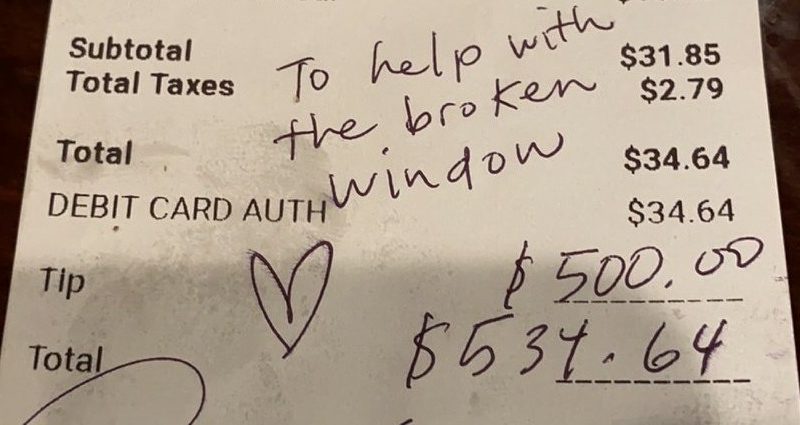 Subtotal $31.85
Total Taxes $2.79
To help with
the broken
window
Total $34.64
DEBIT CARD AUTH $34.64
Tip $500.00
Total $534.64